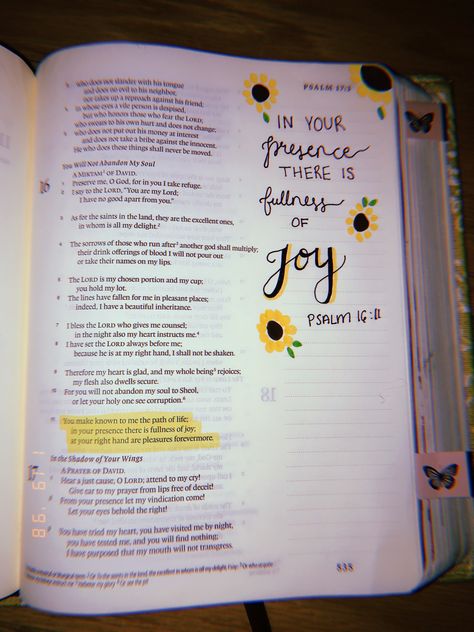 PSALM 17:3
who does not slander with his tongue
and does no evil to his neighbor,
nor takes up a reproach against his friend;
4 in whose eyes a vile person is despised,
but who honors those who fear the LORD;
who swears to his own hurt and does not change;
5 who does not put out his money at interest
and does not take a bribe against the innocent.
He who does these things shall never be moved.
You Will Not Abandon My Soul
16 A MIKTAM OF DAVID.
1 Preserve me, O God, for in you I take refuge.
2 I say to the LORD, "You are my Lord;
I have no good apart from you."
3 As for the saints in the land, they are the excellent ones,
in whom is all my delight.
4 The sorrows of those who run after another god shall multiply;
their drink offerings of blood I will not pour out
or take their names on my lips.
5 The LORD is my chosen portion and my cup;
you hold my lot.
6 The lines have fallen for me in pleasant places;
indeed, I have a beautiful inheritance.
7 I bless the LORD who gives me counsel;
in the night also my heart instructs me.
8 I have set the LORD always before me;
because he is at my right hand, I shall not be shaken.
9 Therefore my heart is glad, and my whole being rejoices;
my flesh also dwells secure.
10 For you will not abandon my soul to Sheol,
or let your holy one see corruption.
11 You make known to me the path of life;
in your presence there is fullness of joy;
at your right hand are pleasures forevermore.
In the Shadow of Your Wings
17 A PRAYER OF DAVID.
Hear a just cause, O LORD; attend to my cry!
Give ear to my prayer from lips free of deceit!
From your presence let my vindication come!
Let your eyes behold the right!
You have tried my heart, you have visited me by night,
you have tested me, and you will find nothing;
I have purposed that my mouth will not transgress.
535
IN YOUR
presence
THERE IS
fullness
OF
Joy
PSALM 16:11